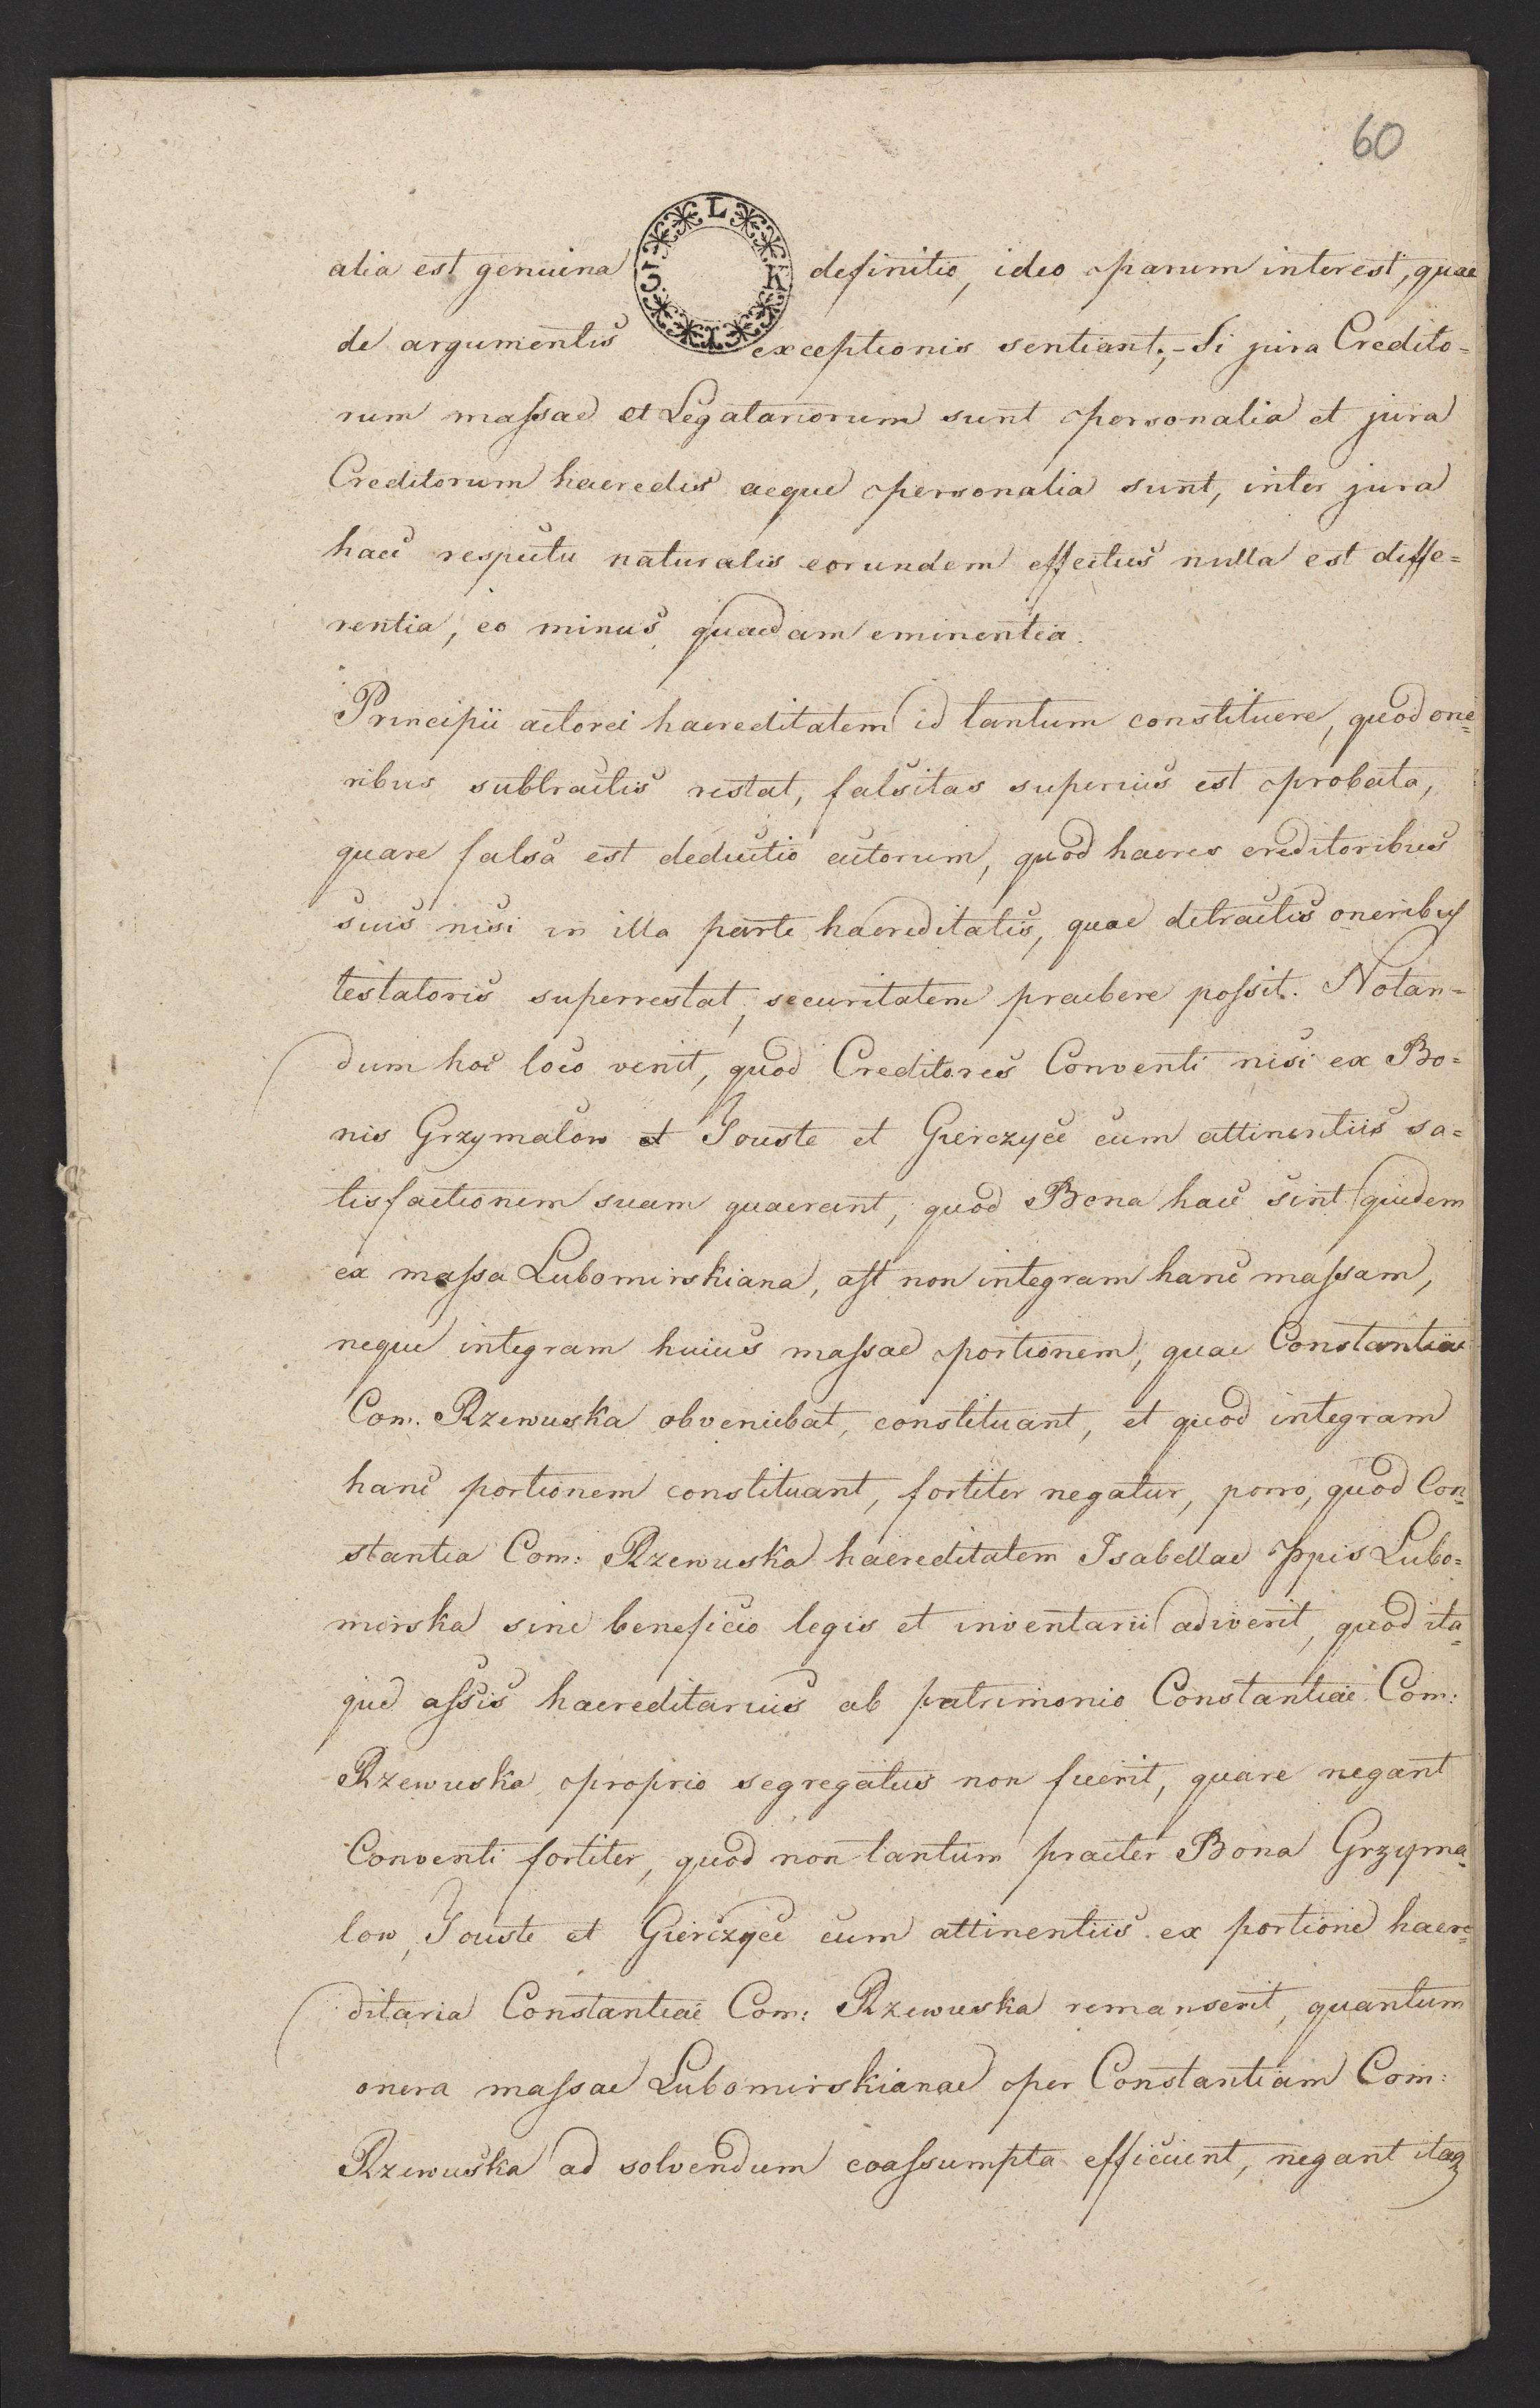 60
alia est genuina definitio, ideo parum interest, quae
de argumentis exceptionis sentiant, – Si jura Credito=
rum massae et Legatariorum sunt personalia et jura
Creditorum haeredis aeque personalia sunt, inter jura
haec respectu naturalis eorundem effectus nulla est diffe=
rentia, eo minus quaedam eminentia.
Principii actorei haereditatem id tantum constituere, quod one=
ribus subtractis restat, falsitas superius est probata,
quare falsa est deductio actorum, quod haeres creditoribus
suis nisi in illa parte haereditatis, quae detractis oneribus
testatoris superrestat, securitatem praebere possit. Notan=
dum hoc loco venit, quod Creditores Conventi nisi ex Bo=
nis Grzymałow et Touste et Gierczyce cum attinentiis sa=
tisfactionem suam quaerant, quod Bona haec sint quidem
ex massa Lubomirskiana, ast non integram hanc massam,
neque integram huius massae portionem, quae Constantiae
Com. Rzewuska obveniebat, constituant, et quod integram
hanc portionem constituant, fortiter negatur, porro, quod Con=
stantia Com: Rzewuska haereditatem Isabellae Ppis Lubo=
mirska sine beneficio legis et inventarii adiverit, quod ita=
que assis haereditarius ab patrimonio Constantiae Com:
Rzewuska proprio segregatus non fuerit, quare negant
Conventi fortiter, quod non tantum praeter Bona Grzyma=
low, Touste et Gierczyce cum attinentiis ex portione haere=
ditaria Constantiae Com: Rzewuska remanserit, quantum
onera massae Lubomirskianae per Constantiam Com:
Rzewuska ad solvendum coassumpta efficiunt, negant itaq